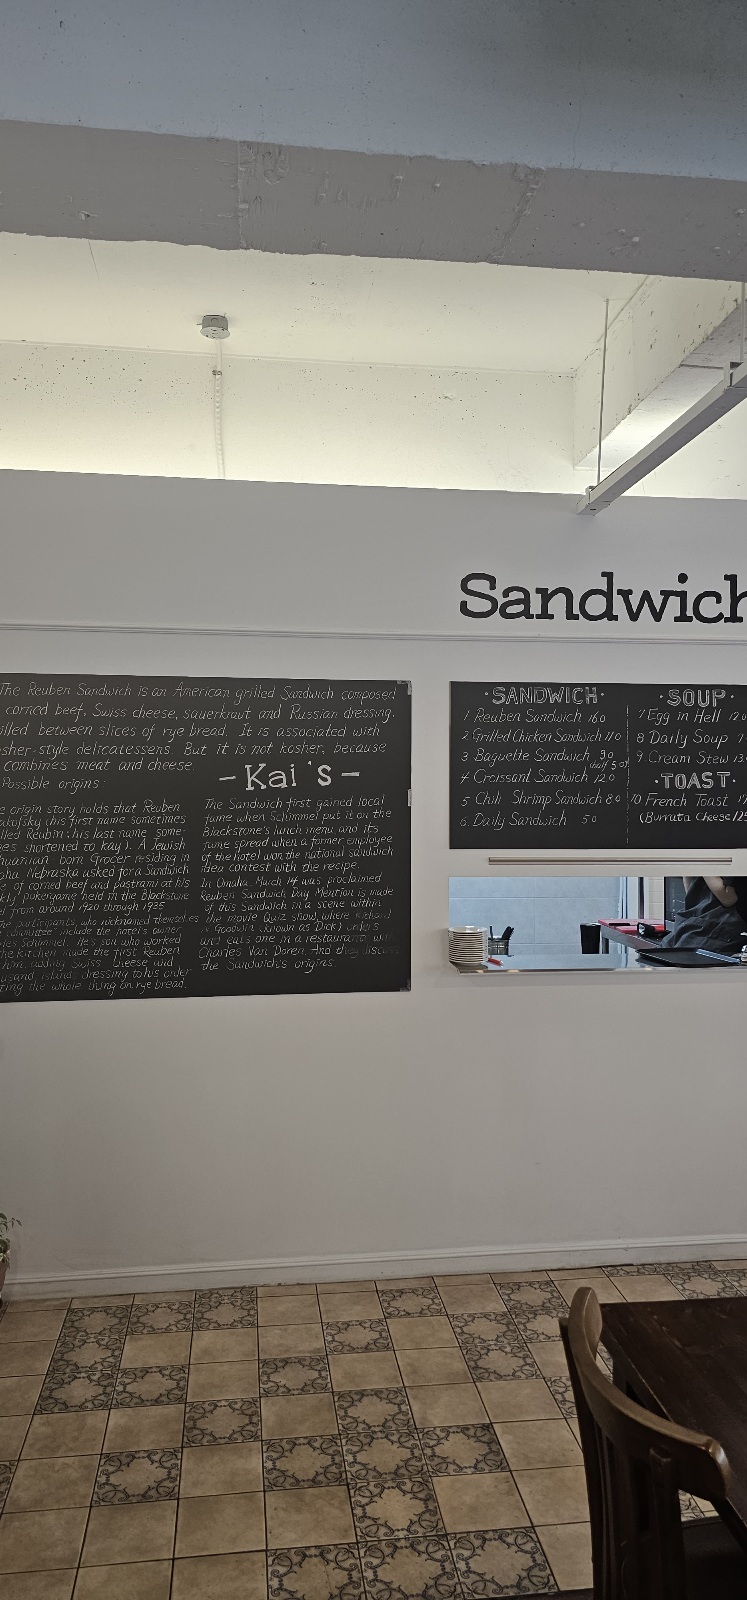 Sandwich
The Reuben Sandwich is an American grilled Sandwich composed
corned beef, Swiss cheese, sauerkraut and Russian dressing.
illed between slices of rye bread. It is associated with
sher-style delicatessens. But it is not kosher, because
combines meat and cheese.
Possible origins:
- Kai's -
e origin story holds that Reuben
(his first name sometimes
lled Reubin; his last name some-
es shortened to kay). A Jewish
huanian born Grocer residing in
aha Nebraska asked for a Sandwich
e of corned beef and pastrami at his
kly poker game held in the Blackstone
l from around 1920 through 1935
he participants, who nicknamed themselves
include the hotel's owner
les Schimmel. He's son who worked
the kitchen made the first Reuben
him, adding Swiss cheese and
usand island dressing to his order
ting the whole thing on rye bread.
The Sandwich first gained local
fame when Schimmel put it on the
Blackstone's lunch menu and its
fame spread when a former employee
of the hotel won the national sandwich
idea contest with the recipe.
In Omaha, March 14 was proclaimed
Reuben Sandwich Day Mention is made
of this Sandwich in a scene within
the movie Quiz show, where Richard
N Goodwin (known as Dick) orders
and eats one in a restaurant with
Charles Van Doren. And they discuss
the Sandwich's origins.
·SANDWICH·
1 Reuben Sandwich 160
2 Grilled Chicken Sandwich 110
3 Baguette Sandwich 90
(half 50)
4 Croissant Sandwich 120
5 Chili Shrimp Sandwich 80
6 Daily Sandwich 50
·SOUP·
7 Egg in Hell 120
8 Daily Soup 7
9 Cream Stew 13
·TOAST·
10 French Toast 17
(Burrata Cheese 125